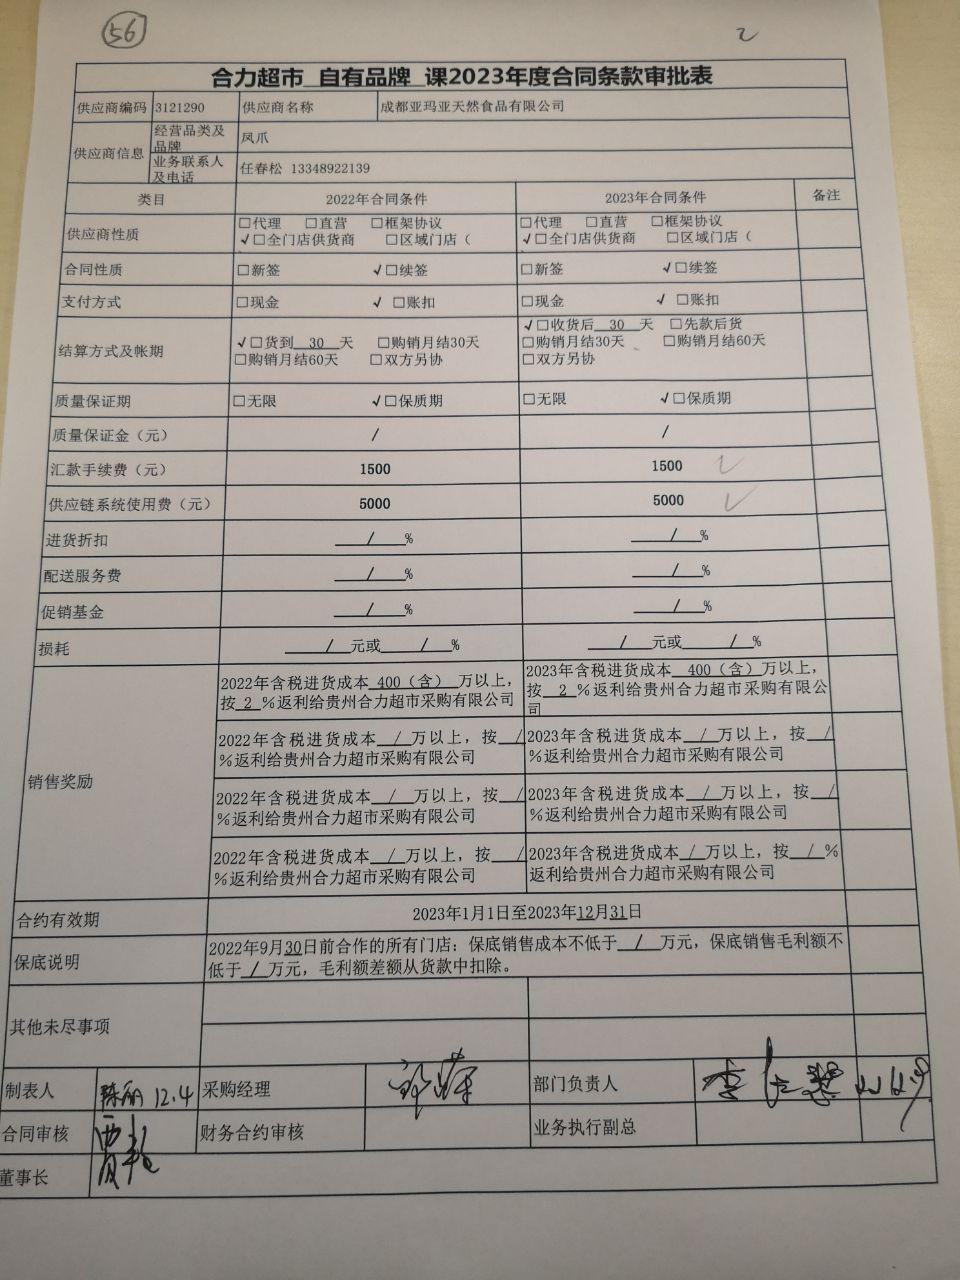 56
2
合力超市 自有品牌 课2023年度合同条款审批表
供应商编码 3121290 供应商名称 成都亚玛亚天然食品有限公司
供应商信息 经营品类及品牌 凤爪
业务联系人及电话 任春松 13348922139
类目 2022年合同条件 2023年合同条件 备注
供应商性质 □代理 □直营 □框架协议 □代理 □直营 □框架协议
√□全门店供货商 □区域门店( √□全门店供货商 □区域门店(
合同性质 □新签 √□续签 □新签 √□续签
支付方式 □现金 √ □账扣 □现金 √ □账扣
结算方式及帐期 √□货到 30 天 □购销月结30天 √□收货后 30 天 □先款后货
□购销月结60天 □双方另协 □购销月结30天 □购销月结60天
□双方另协
质量保证期 □无限 √□保质期 □无限 √□保质期
质量保证金(元) / /
汇款手续费(元) 1500 1500 √
供应链系统使用费(元) 5000 5000 √
进货折扣 / % / %
配送服务费 / % / %
促销基金 / % / %
损耗 / 元或 / % / 元或 / %
销售奖励
2022年含税进货成本 400(含) 万以上,
按 2 %返利给贵州合力超市采购有限公司
2023年含税进货成本 400(含)万以上,
按 2 %返利给贵州合力超市采购有限公
司
2022年含税进货成本 / 万以上,按 /
%返利给贵州合力超市采购有限公司
2023年含税进货成本 / 万以上,按 /
%返利给贵州合力超市采购有限公司
2022年含税进货成本 / 万以上,按 /
%返利给贵州合力超市采购有限公司
2023年含税进货成本 / 万以上,按 /
%返利给贵州合力超市采购有限公司
2022年含税进货成本 / 万以上,按 /
%返利给贵州合力超市采购有限公司
2023年含税进货成本 / 万以上,按 / %
返利给贵州合力超市采购有限公司
合约有效期 2023年1月1日至2023年12月31日
保底说明 2022年9月30日前合作的所有门店:保底销售成本不低于 / 万元,保底销售毛利额不
低于 / 万元,毛利额差额从货款中扣除。
其他未尽事项
制表人 陈丽 12.4 采购经理 部门负责人
合同审核 财务合约审核 业务执行副总
董事长